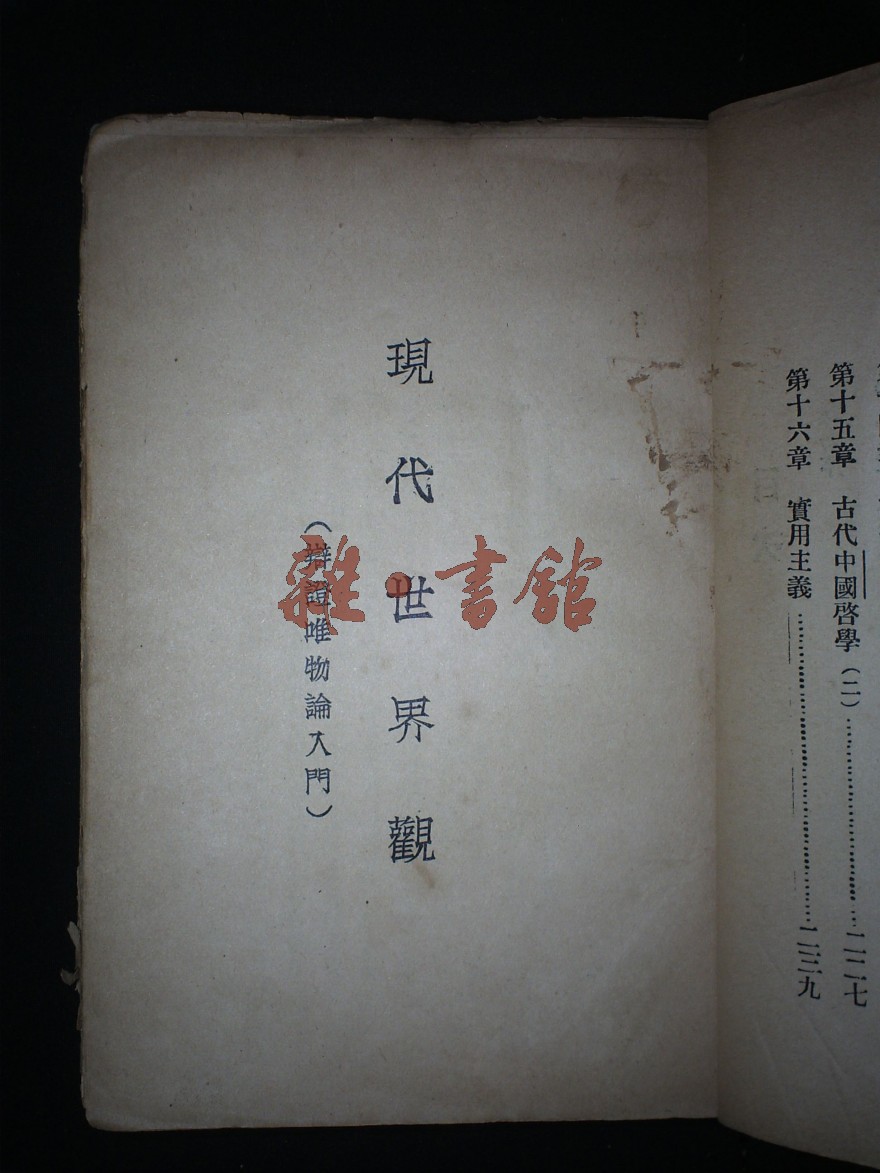 第十五章 古代中國啓學(二)…………二二七
第十六章 實用主義…………二三九
現代世界觀
(辯證唯物論入門)
雜·書館